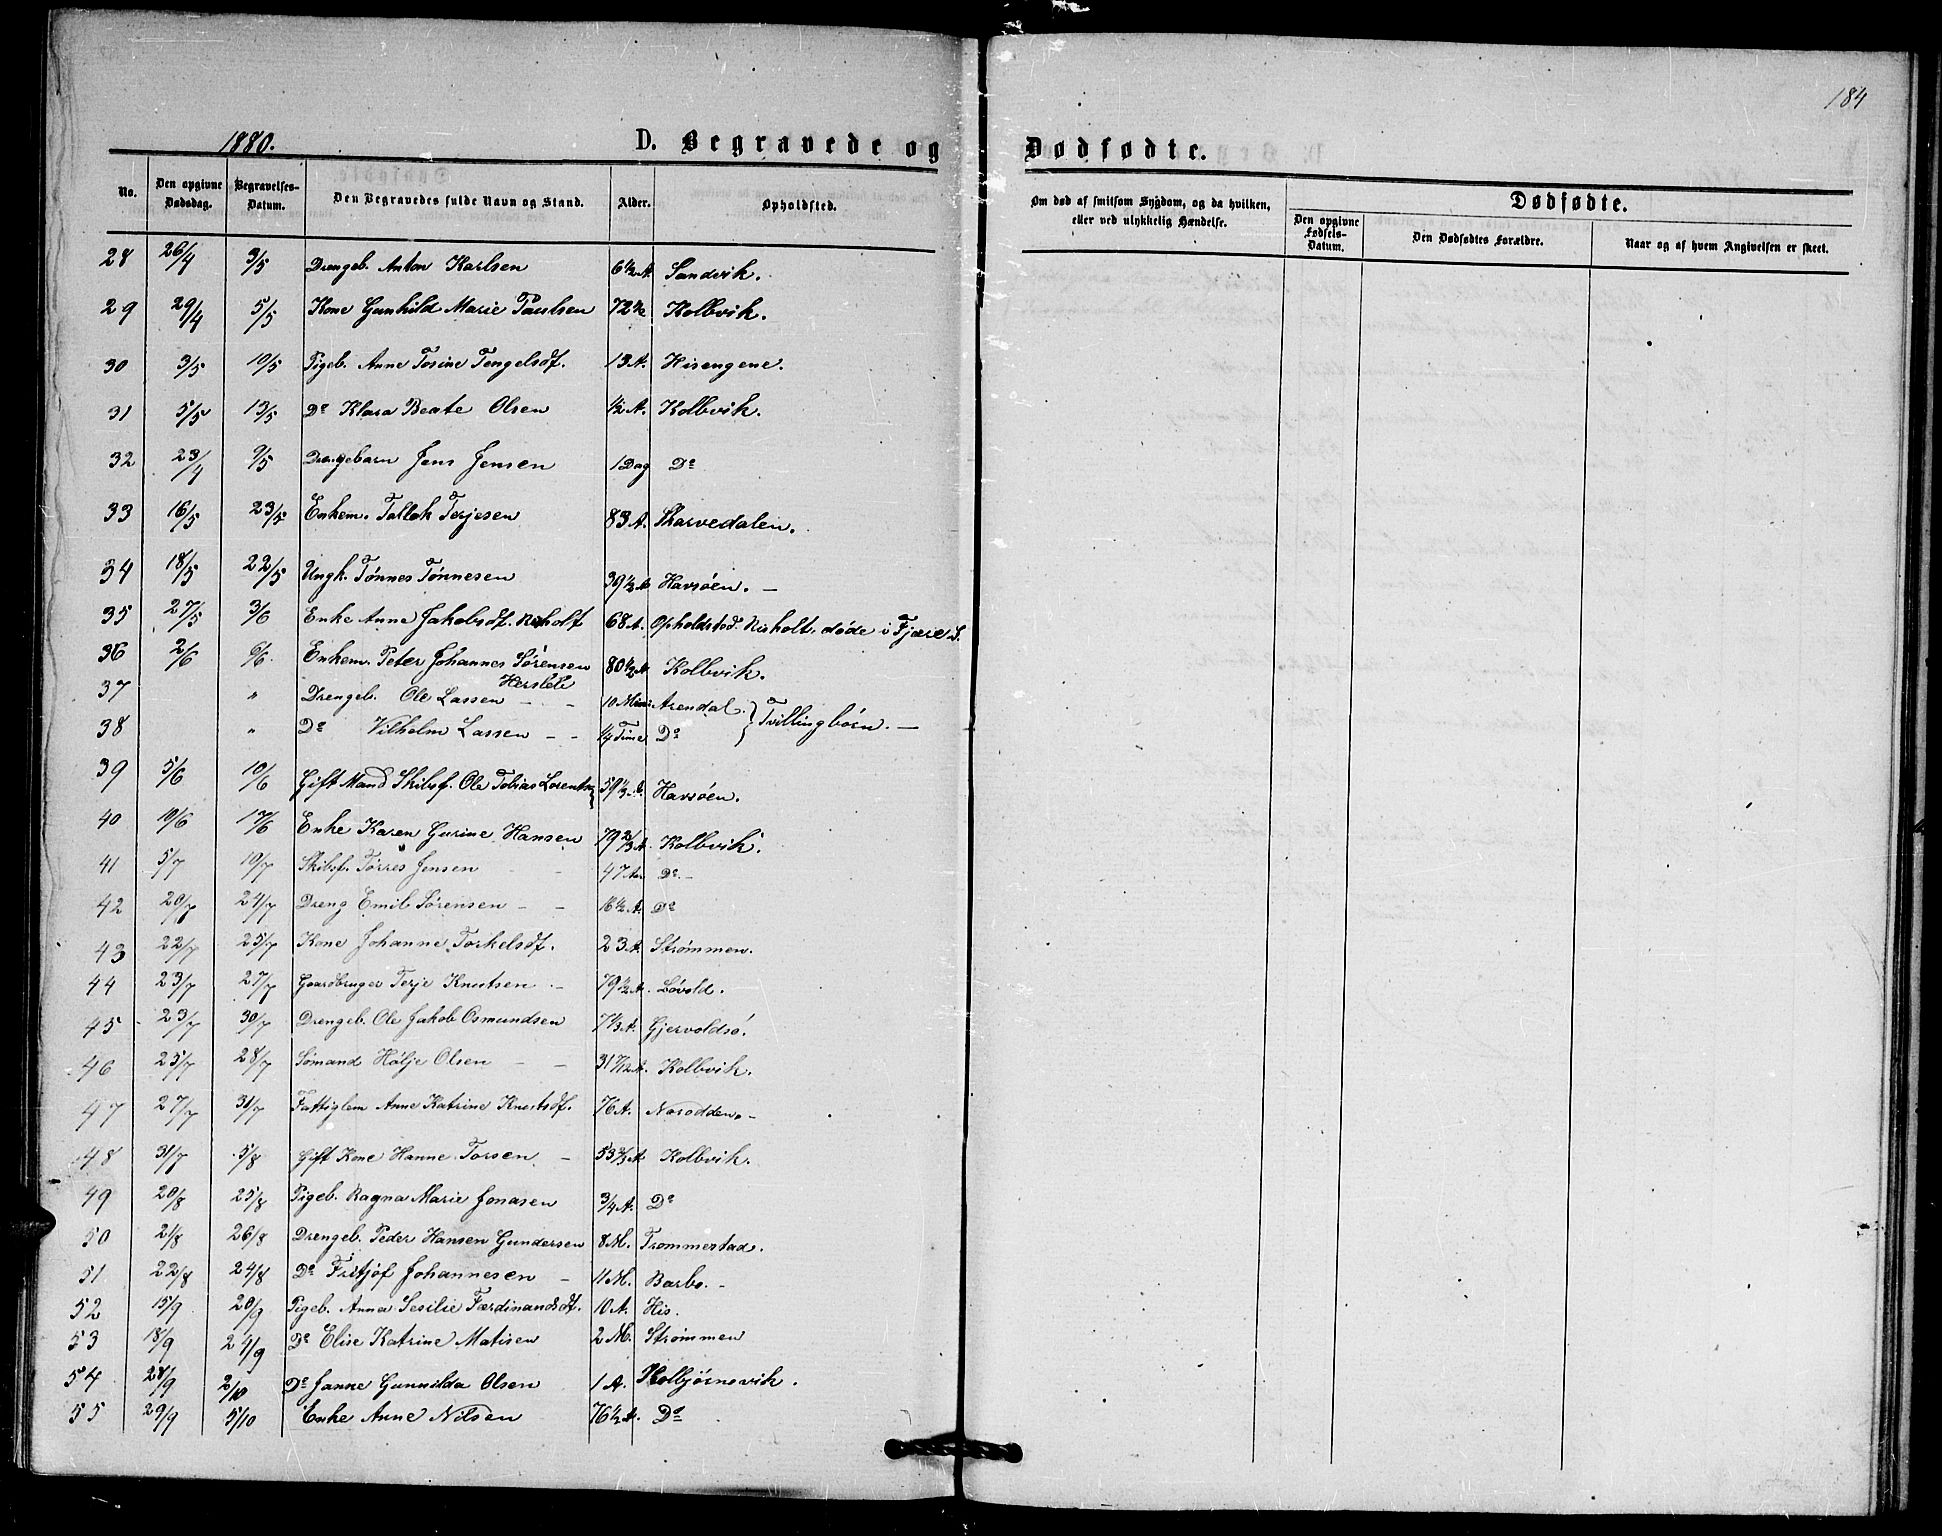 184
1880.
D. Begravede og Dødfødte.
No.
Den opgivne Dødsdag.
Begravelses-Datum.
Den Begravedes fulde Navn og Stand.
Alder.
Opholdsted.
Om død af smitsom Sygdom, og da hvilken, eller ved ulykkelig Hændelse.
Dødfødte.
Den opgivne Fødsels-Datum.
Den Dødfødtes Forældre.
Naar og af hvem Angivelsen er skeet.
28 26/4 3/5 Drengeb. Anton Karlsen 6 1/2 A. Sandvik.
29 29/4 5/5 Kone Gunhild Marie Paulsen 72 Kolbvik.
30 3/5 10/5 Pigeb. Anne Tosine Tengelsdt. 13 A. Hisengene.
31 5/5 13/5 Do Klara Beate Olsen 1/2 A. Kolbvik.
32 23/4 9/5 Drengebarn Jens Jensen 1 Dag Do
33 16/5 23/5 Enkem. Tallak Terjesen 83 A. Skarvedalen.
34 18/5 22/5 Ungk. Tønnes Tønnesen 39 1/2 A Havsøen. —
35 27/5 3/6 Enke Anne Jakobsdt. Risholt 68 A. Opholdsted. Risholt, døde i Fjære S.
36 2/6 6/6. Enkem. Peter Johannes Sørensen Hersleb 80 1/2 A Kolbvik.
37 " Drengeb. Ole Lassen — — 10 Min: Arendal. } Tvillingbørn. —
38 " Do Vilhelm Lassen — — 1/4 Time Do
39 5/6 10/6 Gift Mand Skibsf. Ole Tobias Lorentsen 59 1/3 A. Havsøen.
40 10/6 17/6 Enke Karen Gurine Hansen 79 2/3 A. Kolbvik.
41 5/7 10/7 Skibsf. Tørres Jensen 47 Aar Do. —
42 20/7 24/7 Dreng Emil Sørensen — — 16 1/2 A. Do
43 22/7 25/7 Kone Johanne Torkelsdt. 23 A. Strømmen.
44 23/7 27/7 Gaardbruger Terje Knutsen — 79 1/2 A. Løvold.
45 23/7 30/7 Drengeb. Ole Jakob Osmundsen 7 1/3 A. Gjervoldsø.
46 25/7 28/7 Sømand Hølje Olsen — — 31 7/12 A. Kolbvik.
47 27/7 31/7 Fattiglem Anne Katrine Knutsdt. 76 A. Narodden. —
48 31/7 5/8 Gift Kone Hanne Torsen — 53 2/3 A Kolbvik.
49 20/8 25/8 Pigeb. Ragna Marie Jonasen 3/4 A. Do
50 21/8 26/8 Drengeb. Peder Hansen Gundersen 8 M. Trommestad.
51 22/8 24/8 Do Fritjof Johannesen — 11 M. Barbo. —
52 15/9 20/9 Pigeb. Anna Sesilie Færdinandsdt. 10 A. His.
53 18/9 24/9 Do Elise Katrine Matisen 2 M. Strømmen
54 28/9 2/10 Do Janne Gunnilda Olsen 1 A. Kolbjørnsvik.
55 29/9 5/10 Enke Anne Nilsen 76 1/2 A. Do